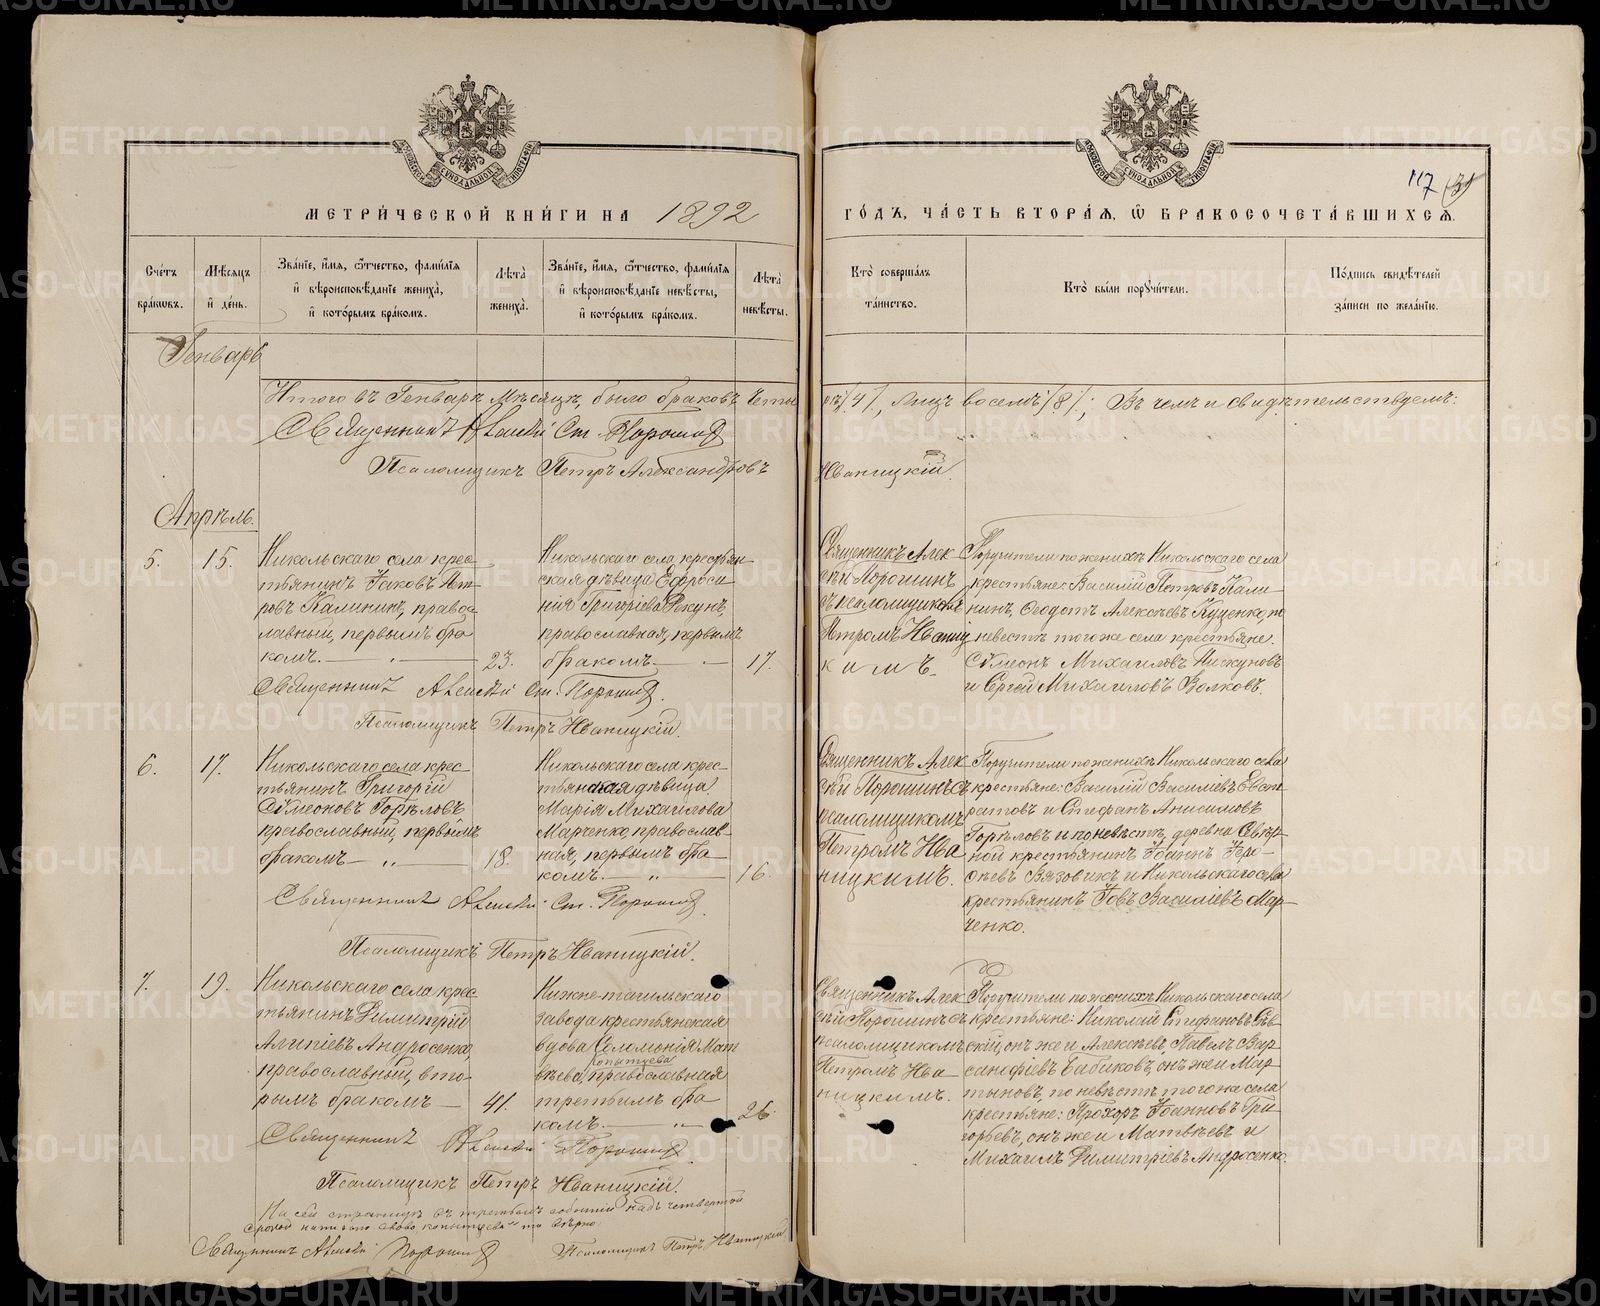 МЕТРИ́ЧЕСКОЙ КНИ́ГИ НА 1892
ГО́ДЪ, ЧА́СТЬ ВТОРА́Я, Ѡ҆ БРАКОСОЧЕТА́ВШИХСѦ.
117
Сче́тъ бра́кѡвъ.
Мѣ́сяцъ и҆ де́нь.
Зва́нїе, и҆́мѧ, ѻ҆́тчество, фами́лїѧ и҆ вѣроисповѣ́данїе жениха̀, и҆ кото́рымъ бра́комъ.
Лѣ́та жениха̀.
Зва́нїе, и҆́мѧ, ѻ҆́тчество, фами́лїѧ и҆ вѣроисповѣ́данїе невѣ́сты, и҆ кото́рымъ бра́комъ.
Лѣ́та невѣ́сты.
Кто̀ соверша́лъ та́инство.
Кто̀ бы́ли порꙋчи́тели.
По́дпись свидѣ́телей за́писи по жела́нїю.
Генварь
Итого въ Генварѣ мѣсяцѣ, было браковъ четы
ре /4/, лицъ восемь /8/; Въ чемъ и свидѣтельствуемъ:
Священникъ Алексѣй Ст. Порошинъ
Псаломщикъ Петръ Александровъ
Иваницкій.
Апрѣль.
5.
15.
Никольскаго села крес
тьянинъ Іаковъ Пет
ровъ Калининъ, правос
лавный, первымъ бра
комъ.
23.
Никольскаго села крестьян
ская дѣвица Ефроси
нія Григоріева Рекунъ,
православная, первымъ
бракомъ
17.
Священникъ Алек
сѣй Порошинъ
съ псаломщикомъ
Петромъ Иваниц
кимъ.
Поручители по женихѣ Никольскаго села
крестьяне: Василій Петровъ Кали
нинъ, Ѳеодотъ Алексѣевъ Куценко, по
невестѣ того же села крестьяне:
Сѵмеонъ Михаиловъ Пискуновъ
и Сергѣй Михаиловъ Волковъ.
Священникъ Алексѣй Ст. Порошинъ.
Псаломщикъ Петръ Иваницкій.
6.
17.
Никольскаго села крес
тьянинъ Григорій
Сѵмеоновъ Горѣловъ
православный, первымъ
бракомъ
18.
Никольскаго села крес
тьянская дѣвица
Марія Михаилова
Марченко, православ
ная, первымъ бра
комъ.
16.
Священникъ Алек
сѣй Порошинъ съ
псаломщикомъ
Петромъ Ива
ницкимъ.
Поручители по женихѣ Никольскаго села
крестьяне: Василій Василіевъ Евст
ратовъ и Стефанъ Анисимовъ
Горѣловъ и по невѣстѣ, деревни Сѣвер
ной крестьянинъ Іоаннъ Іеро
ѳеевъ Вязовикъ и Никольскаго села
крестьянинъ Іовъ Василіевъ Мар
ченко.
Священникъ Алексѣй Ст. Порошинъ.
Псаломщикъ Петръ Иваницкій.
7.
19.
Никольскаго села крес
тьянинъ Димитрій
Алипіевъ Андросенко,
православный, вто
рымъ бракомъ
41.
Нижне-тагильскаго
завода крестьянская
вдова Соломонія Мат
копытцева
вѣева, православная
третьимъ бра
комъ.
26
Священникъ Алек
сѣй Порошинъ съ
псаломщикомъ
Петромъ Ива
ницкимъ.
Поручители по женихѣ Никольскаго села
крестьяне: Николай Стефановъ
онъ же и Алексѣевъ, Павелъ Вар
Бабиковъ, онъ же и Мар
тыновъ, по невѣстѣ того же села
крестьяне: Прохоръ Іоанновъ Гри
горьевъ, онъ же и Матвѣевъ и
Михаилъ Димитріевъ Андросенко.
Священникъ Алексѣй Порошинъ.
Псаломщикъ Петръ Иваницкій.
На сей страницѣ въ третьемъ событіи надъ четвертой
строкой написано слово „копытцева“ то вѣрно:
Священникъ Алексѣй Порошинъ
Псаломщикъ Петръ Иваницкій
METRIKI.GASO-URAL.RU